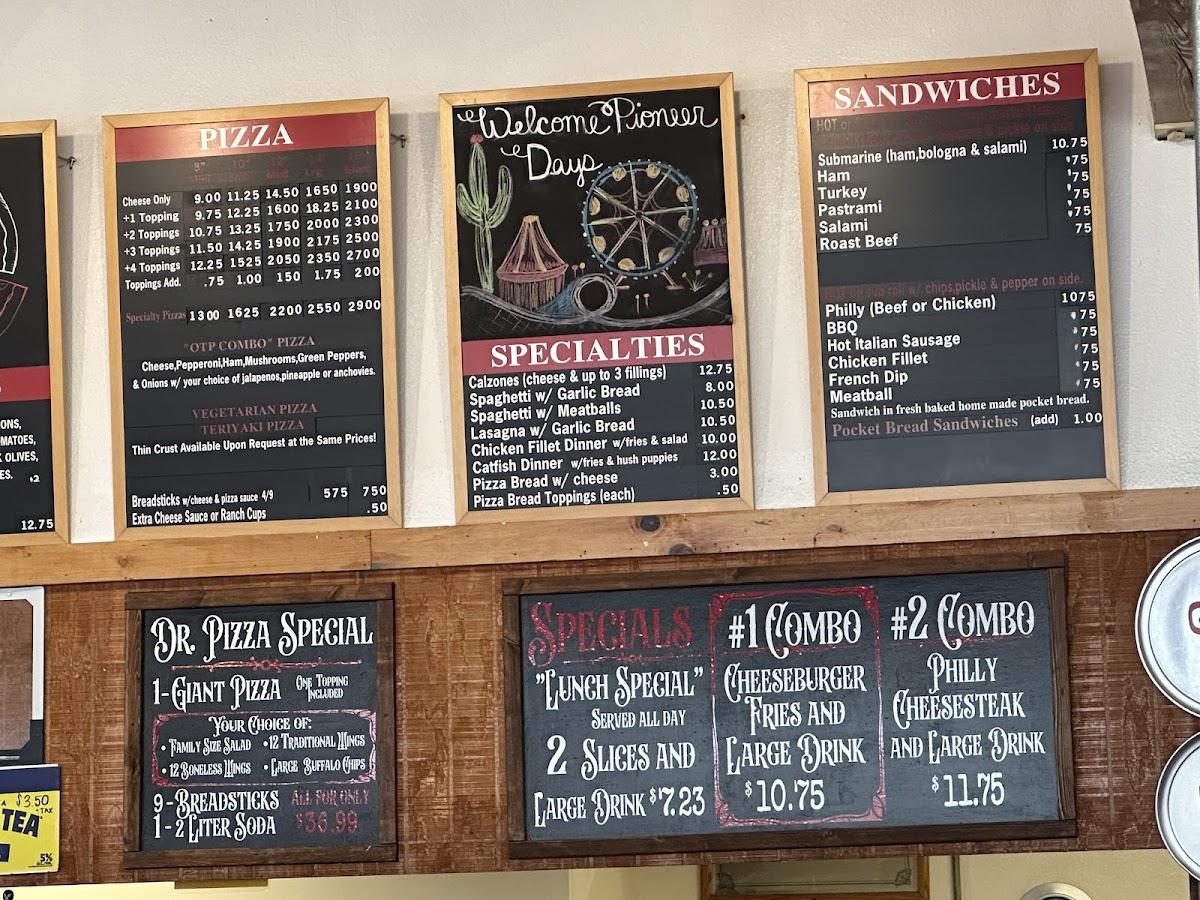 ONS,
OMATOES,
K OLIVES,
ES.
12.75
PIZZA
8" 10" 12" 14"
Cheese Only 9.00 11.25 14.50 1650 1900
+1 Topping 9.75 12.25 1600 18.25 2100
+2 Toppings 10.75 13.25 1750 2000 2300
+3 Toppings 11.50 14.25 1900 2175 2500
+4 Toppings 12.25 1525 2050 2350 2700
Toppings Add. .75 1.00 150 1.75 200
Specialty Pizzas 1300 1625 2200 2550 2900
"OTP COMBO" PIZZA
Cheese,Pepperoni,Ham,Mushrooms,Green Peppers,
& Onions w/ your choice of jalapenos,pineapple or anchovies.
VEGETARIAN PIZZA
TERIYAKI PIZZA
Thin Crust Available Upon Request at the Same Prices!
Breadsticks w/cheese & pizza sauce 4/9 575 750
Extra Cheese Sauce or Ranch Cups .50
Welcome Pioneer
Days
SPECIALTIES
Calzones (cheese & up to 3 fillings) 12.75
Spaghetti w/ Garlic Bread 8.00
Spaghetti w/ Meatballs 10.50
Lasagna w/ Garlic Bread 10.50
Chicken Fillet Dinner w/fries & salad 10.00
Catfish Dinner w/fries & hush puppies 12.00
Pizza Bread w/ cheese 3.00
Pizza Bread Toppings (each) .50
SANDWICHES
HOT
& pickle on side.
Submarine (ham,bologna & salami) 10.75
Ham 75
Turkey 75
Pastrami 75
Salami 75
Roast Beef 75
w/ chips,pickle & pepper on side.
Philly (Beef or Chicken) 1075
BBQ 75
Hot Italian Sausage 75
Chicken Fillet 75
French Dip 75
Meatball 75
Sandwich in fresh baked home made pocket bread.
Pocket Bread Sandwiches (add) 1.00
DR. PIZZA SPECIAL
1-GIANT PIZZA ONE TOPPING INCLUDED
YOUR CHOICE OF:
• FAMILY SIZE SALAD • 12 TRADITIONAL WINGS
• 12 BONELESS WINGS • LARGE BUFFALO CHIPS
9-BREADSTICKS ALL FOR ONLY
1-2 LITER SODA $36.99
SPECIALS
"LUNCH SPECIAL"
SERVED ALL DAY
2 SLICES AND
LARGE DRINK $7.23
#1 COMBO
CHEESEBURGER
FRIES AND
LARGE DRINK
$10.75
#2 COMBO
PHILLY
CHEESESTEAK
AND LARGE DRINK
$11.75
$3.50
+TAX
TEA
5%